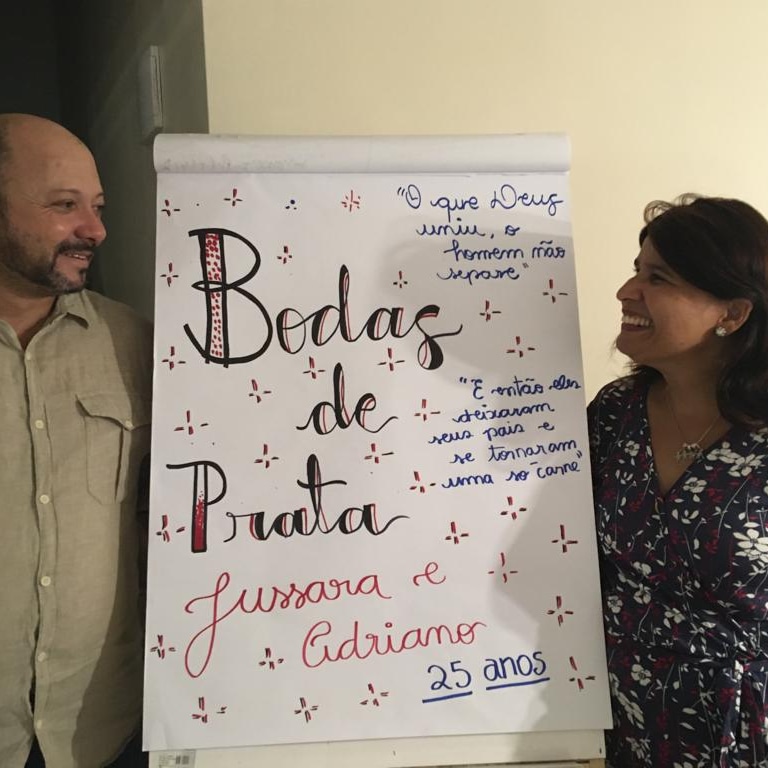 "O que Deus
uniu, o
homem não
separe"
Bodas
de
Prata
"E então eles
deixaram
seus pais e
se tornaram
uma só carne"
Jussara e
Adriano
25 anos